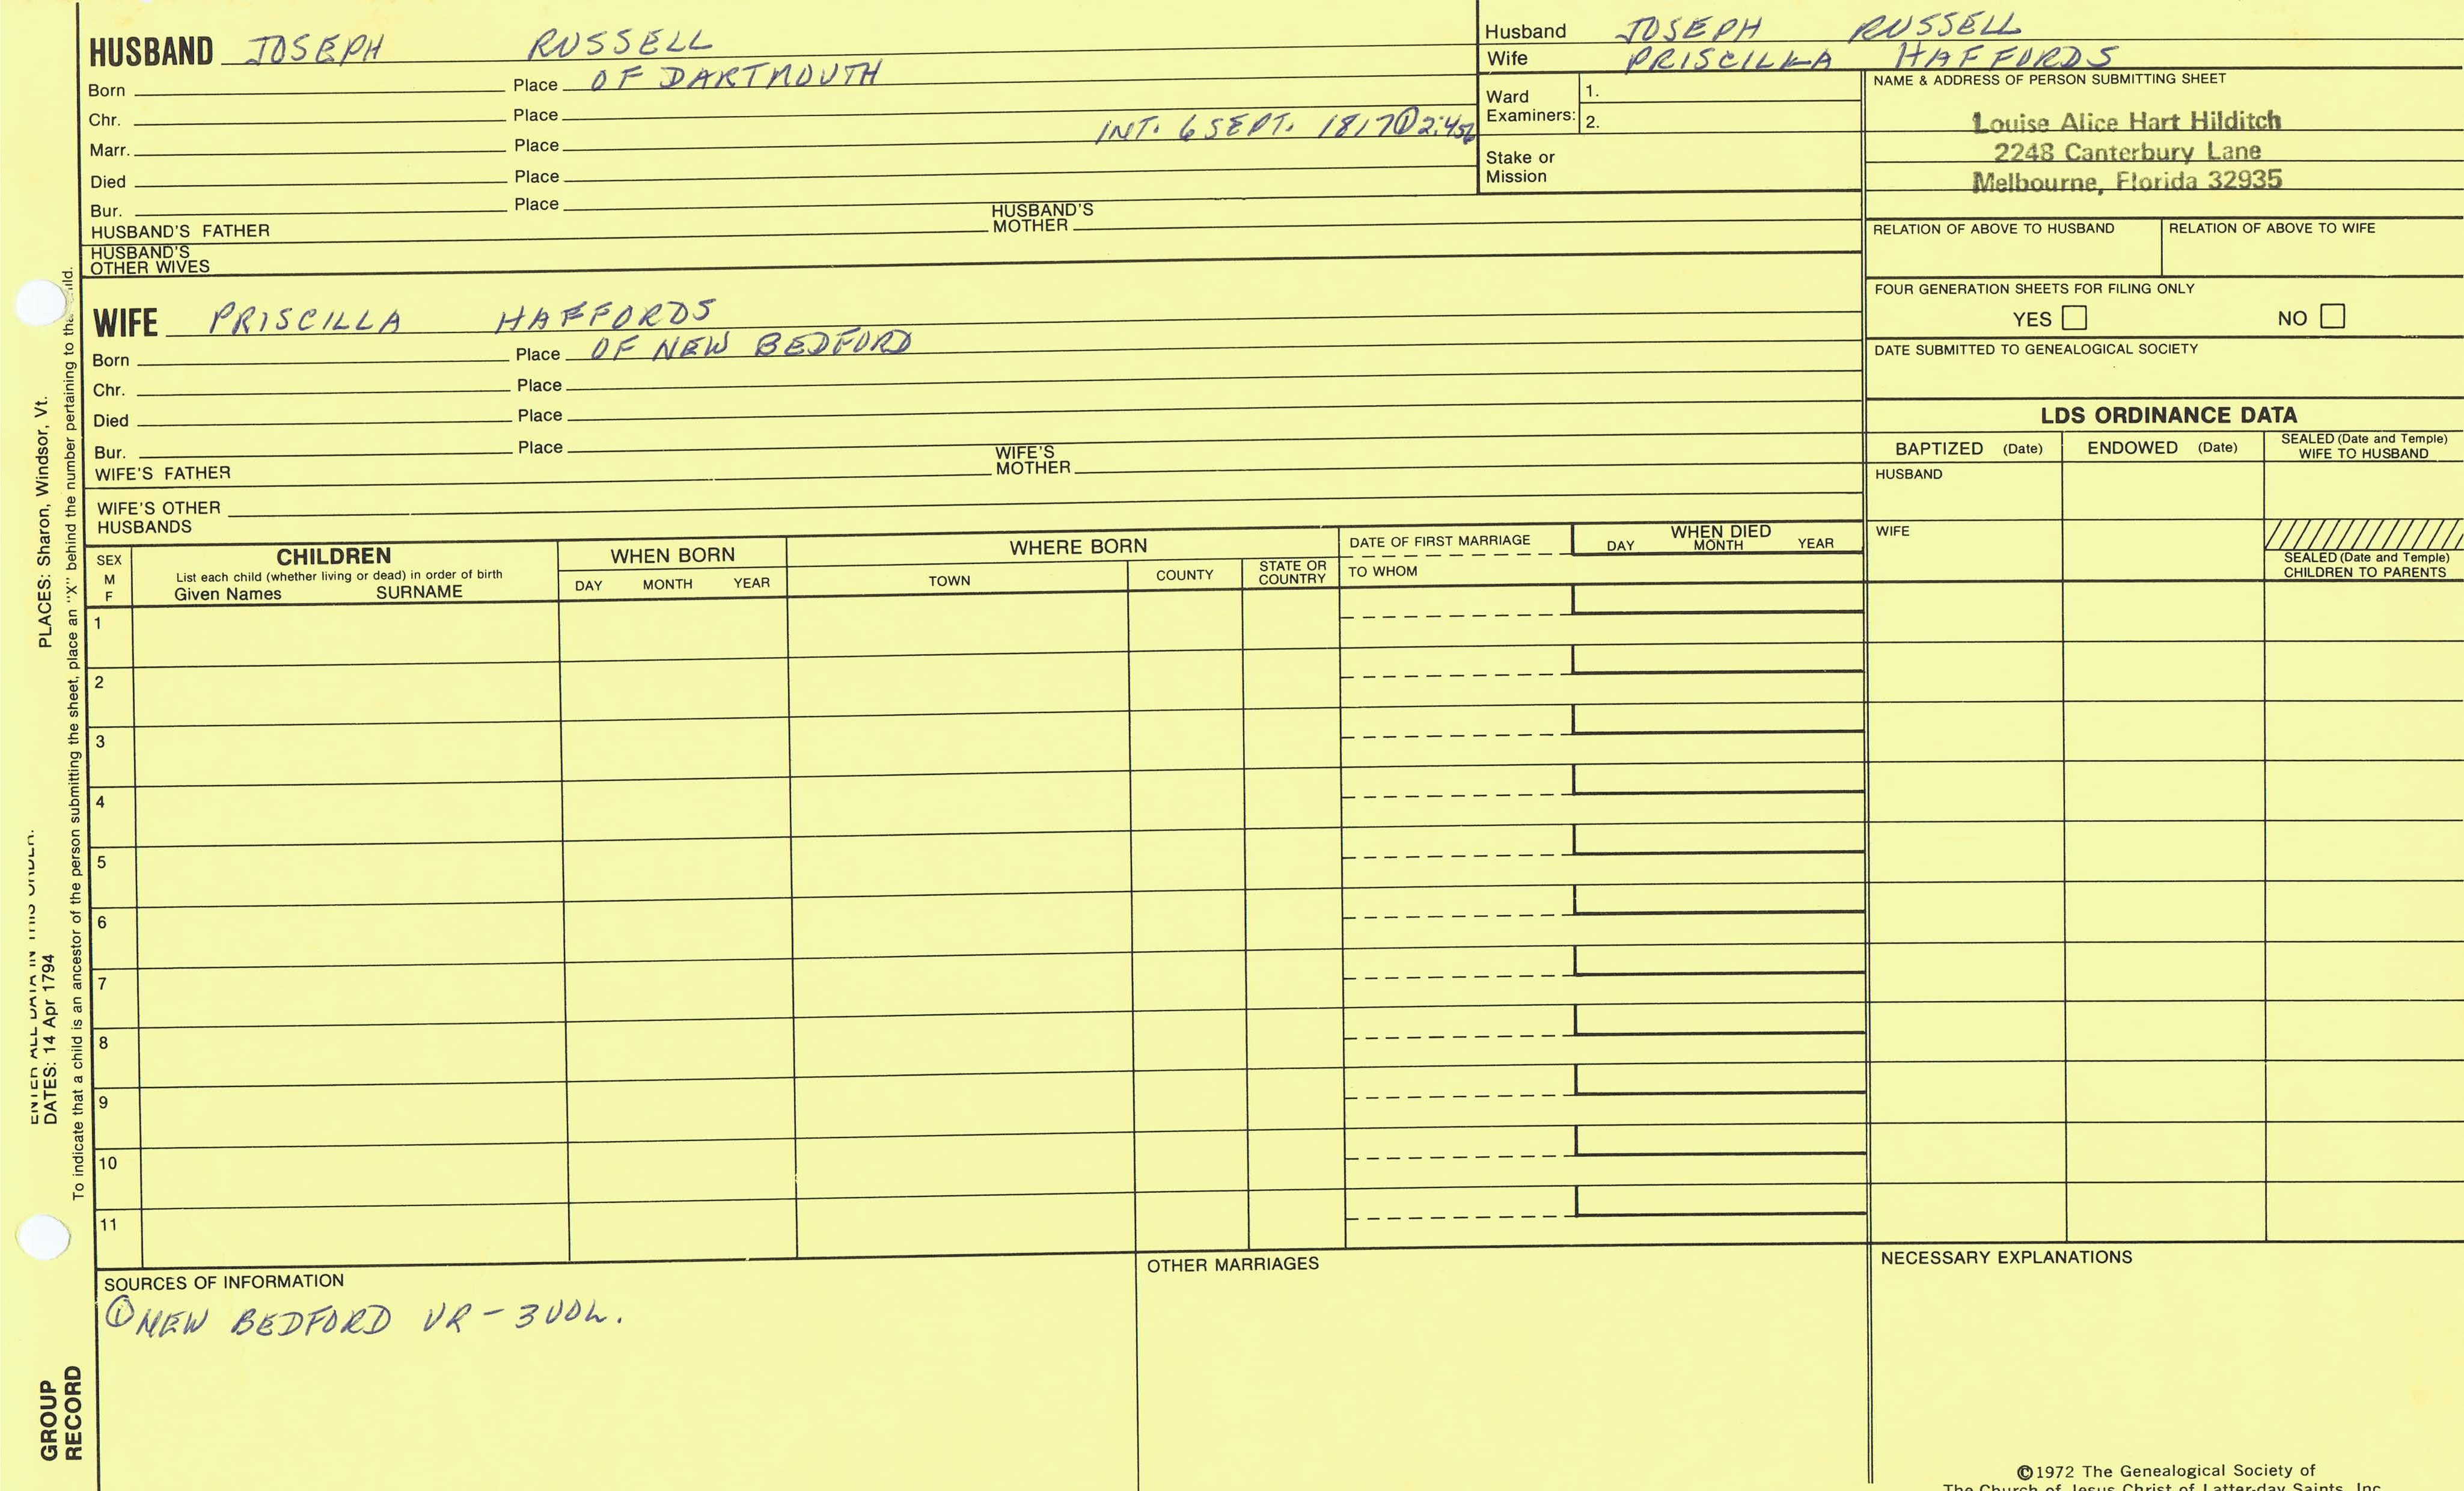 HUSBAND JOSEPH RUSSELL
Born Place OF DARTMOUTH
Chr. Place
INT. 6 SEPT. 1817 ① 2:456
Marr. Place
Died Place
Bur. Place
HUSBAND'S FATHER HUSBAND'S MOTHER
HUSBAND'S OTHER WIVES
Husband JOSEPH RUSSELL
Wife PRISCILLA HAFFORDS
Ward Examiners: 1.
2.
Stake or Mission
NAME & ADDRESS OF PERSON SUBMITTING SHEET
Louise Alice Hart Hilditch
2248 Canterbury Lane
Melbourne, Florida 32935
RELATION OF ABOVE TO HUSBAND RELATION OF ABOVE TO WIFE
FOUR GENERATION SHEETS FOR FILING ONLY
YES NO
DATE SUBMITTED TO GENEALOGICAL SOCIETY
WIFE PRISCILLA HAFFORDS
Born Place OF NEW BEDFORD
Chr. Place
Died Place
Bur. Place
WIFE'S FATHER WIFE'S MOTHER
WIFE'S OTHER HUSBANDS
LDS ORDINANCE DATA
BAPTIZED (Date) ENDOWED (Date) SEALED (Date and Temple) WIFE TO HUSBAND
HUSBAND
WIFE
SEALED (Date and Temple) CHILDREN TO PARENTS
SEX M F
CHILDREN
List each child (whether living or dead) in order of birth
Given Names SURNAME
WHEN BORN
DAY MONTH YEAR
WHERE BORN
TOWN COUNTY STATE OR COUNTRY
DATE OF FIRST MARRIAGE
TO WHOM
WHEN DIED
DAY MONTH YEAR
1
2
3
4
5
6
7
8
9
10
11
SOURCES OF INFORMATION
① NEW BEDFORD VR - 3 VOL.
OTHER MARRIAGES
NECESSARY EXPLANATIONS
©1972 The Genealogical Society of
The Church of Jesus Christ of Latter-day Saints, Inc.
ENTER ALL DATA IN THIS ORDER:
DATES: 14 Apr 1794 PLACES: Sharon, Windsor, Vt.
To indicate that a child is an ancestor of the person submitting the sheet, place an "X" behind the number pertaining to that child.
GROUP
RECORD